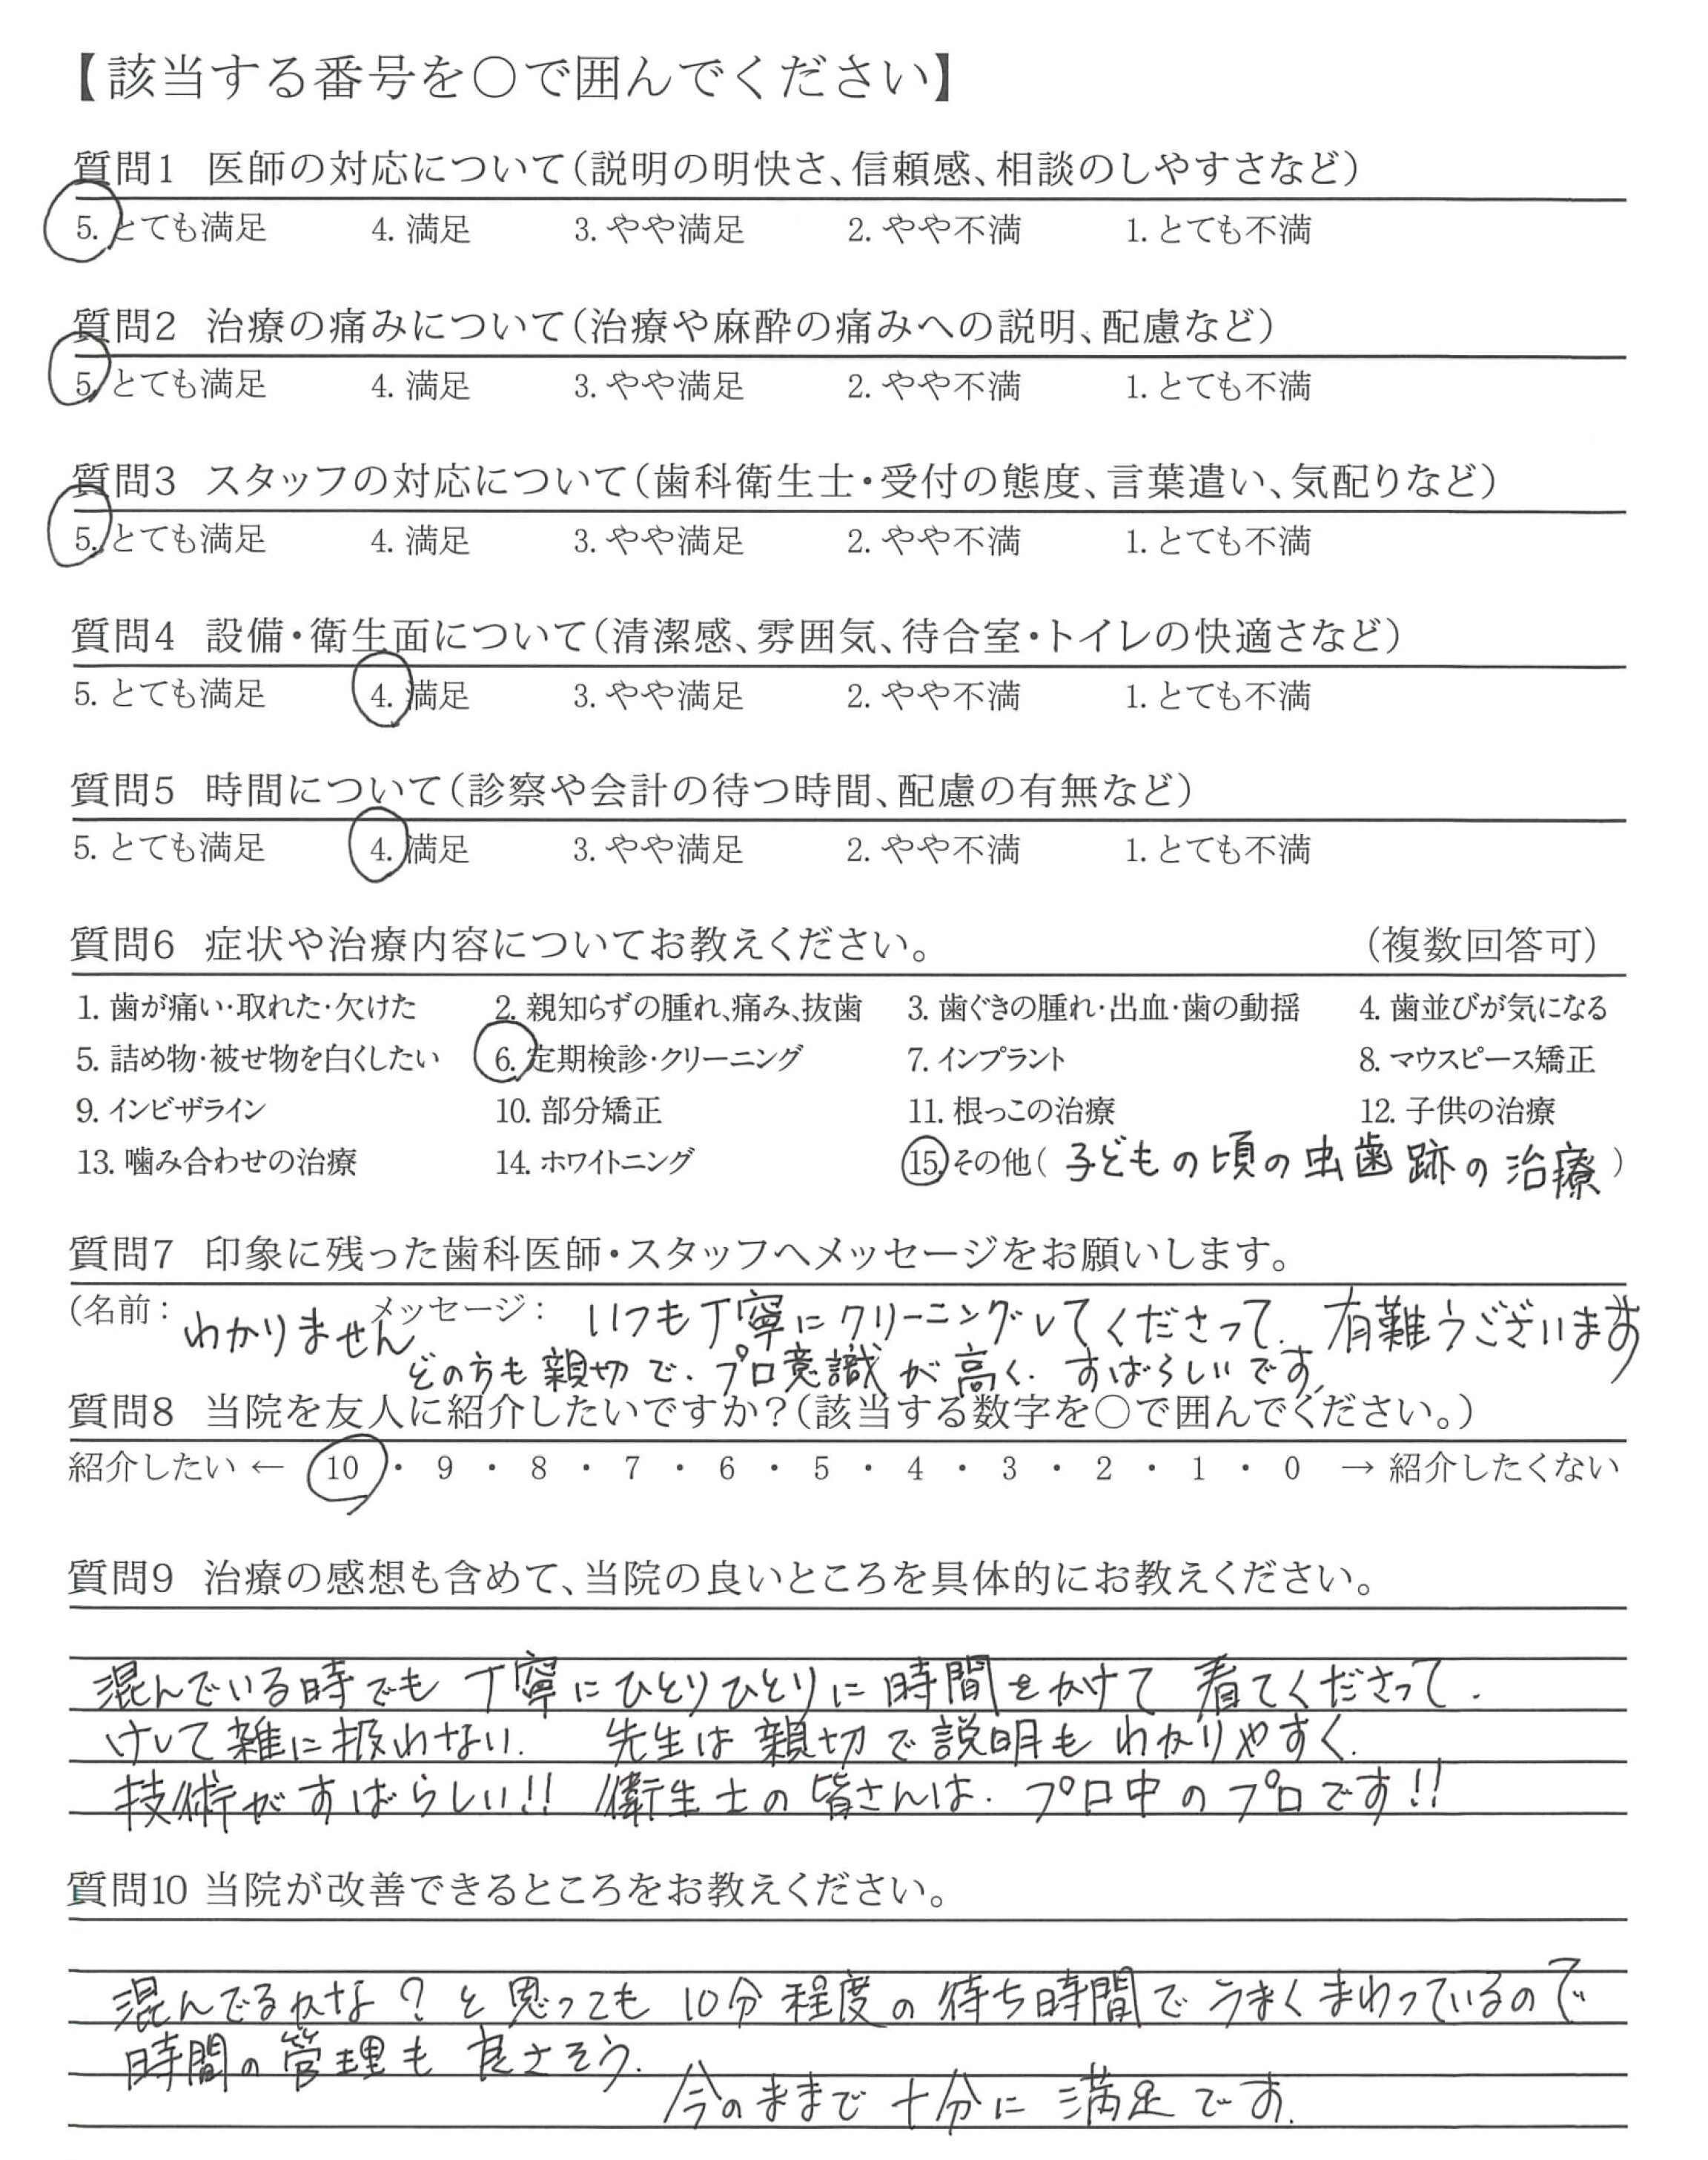 【該当する番号を〇で囲んでください】
質問1 医師の対応について(説明の明快さ、信頼感、相談のしやすさなど)
5. とても満足 4. 満足 3. やや満足 2. やや不満 1. とても不満
質問2 治療の痛みについて(治療や麻酔の痛みへの説明、配慮など)
5. とても満足 4. 満足 3. やや満足 2. やや不満 1. とても不満
質問3 スタッフの対応について(歯科衛生士・受付の態度、言葉遣い、気配りなど)
5. とても満足 4. 満足 3. やや満足 2. やや不満 1. とても不満
質問4 設備・衛生面について(清潔感、雰囲気、待合室・トイレの快適さなど)
5. とても満足 4. 満足 3. やや満足 2. やや不満 1. とても不満
質問5 時間について(診察や会計の待つ時間、配慮の有無など)
5. とても満足 4. 満足 3. やや満足 2. やや不満 1. とても不満
質問6 症状や治療内容についてお教えください。 (複数回答可)
1. 歯が痛い・取れた・欠けた 2. 親知らずの腫れ、痛み、抜歯 3. 歯ぐきの腫れ・出血・歯の動揺 4. 歯並びが気になる
5. 詰め物・被せ物を白くしたい 6. 定期検診・クリーニング 7. インプラント 8. マウスピース矯正
9. インビザライン 10. 部分矯正 11. 根っこの治療 12. 子供の治療
13. 噛み合わせの治療 14. ホワイトニング 15. その他( 子どもの頃の虫歯跡の治療 )
質問7 印象に残った歯科医師・スタッフへメッセージをお願いします。
(名前: わかりません メッセージ: いつも丁寧にクリーニングしてくださって、有難うございます
どの方も親切で、プロ意識が高く、すばらしいです。
質問8 当院を友人に紹介したいですか?(該当する数字を〇で囲んでください。)
紹介したい ← 10 ・ 9 ・ 8 ・ 7 ・ 6 ・ 5 ・ 4 ・ 3 ・ 2 ・ 1 ・ 0 → 紹介したくない
質問9 治療の感想も含めて、当院の良いところを具体的にお教えください。
混んでいる時でも 丁寧にひとりひとりに時間をかけて 看てくださって、
けして雑に扱わない。 先生は親切で説明もわかりやすく、
技術がすばらしい!! 衛生士の皆さんは、プロ中のプロです!!
質問10 当院が改善できるところをお教えください。
混んでるかな?と思っても 10分程度の待ち時間でうまくまわっているので
時間の管理も良さそう。
今のままで十分に満足です。